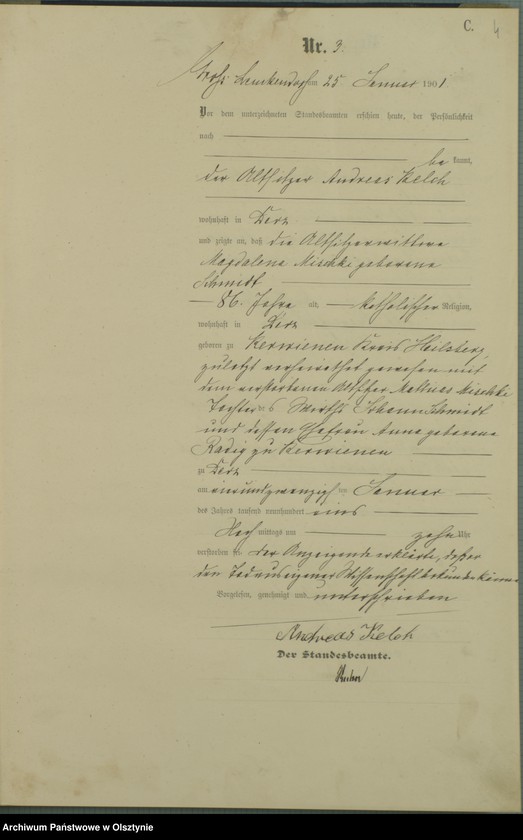 C.
4
Nr. 3.
am 25 Januar 1901.
Vor dem unterzeichneten Standesbeamten erschien heute, der Persönlichkeit
nach
be kannt,
der Altsitzer Andreas Kelch
wohnhaft in Derz
und zeigte an, daß die Altsitzerwittwe
Magdalena Mischki geborene
Schmidt
86 Jahre alt, katholischer Religion,
wohnhaft in Derz
geboren zu Kerwienen Kreis Heilsberg,
zuletzt verheirathet gewesen mit
dem verstorbenen Altsitzer Mischki
Tochter des Wirths Johann Schmidt
und dessen Ehefrau Anna geborene
Radig zu Kerwienen
zu Derz
am vierundzwanzigsten Januar
des Jahres tausend neunhundert eins
Nach mittags um zehn Uhr
verstorben sei der Anzeigende erklärte, daß er
den Tod aus eigener Wissenschaft bekunden könne
Vorgelesen, genehmigt und unterschrieben
Andreas Kelch
Der Standesbeamte.
Archiwum Państwowe w Olsztynie